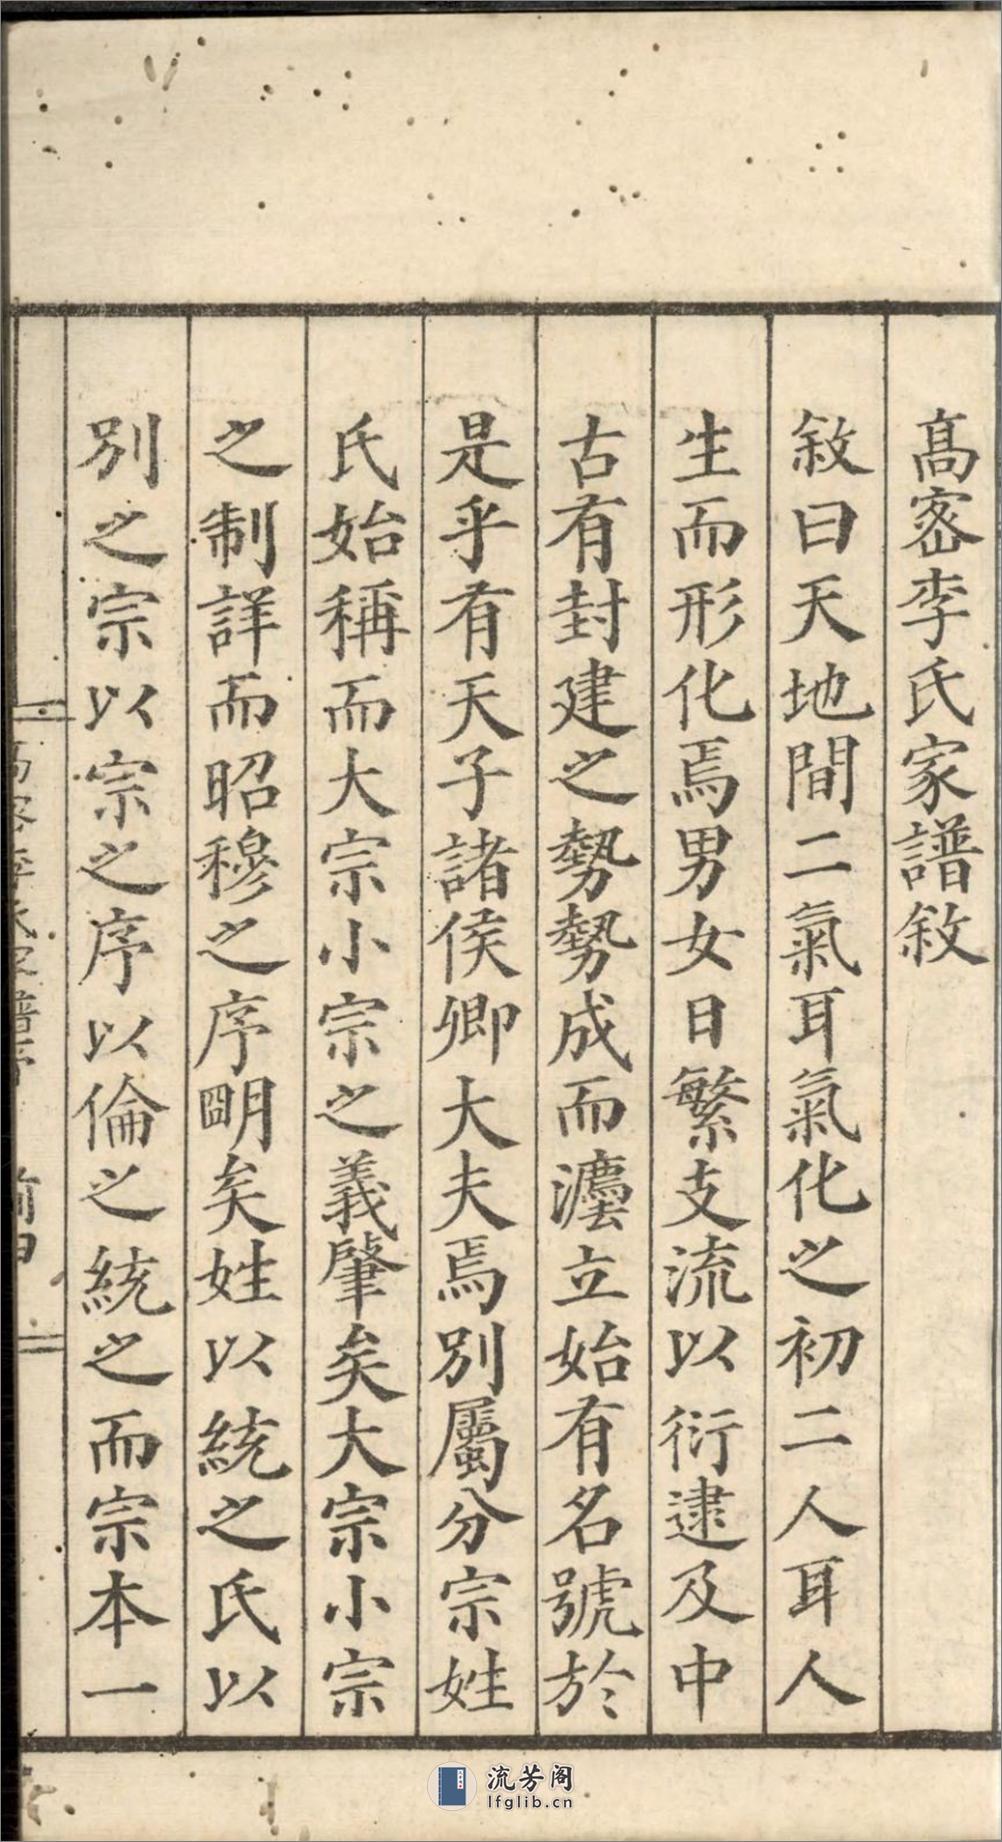 髙宻李氏家譜敘
敘曰天地間二氣耳氣化之初二人耳人
生而形化焉男女日繁支流以衍逮及中
古有封建之勢勢成而灋立始有名號於
是乎有天子諸侯卿大夫焉別屬分宗姓
氏始稱而大宗小宗之義肇矣大宗小宗
之制詳而昭穆之序明矣姓以統之氏以
別之宗以宗之序以倫之統之而宗本一
流芳阁
lfglib.cn